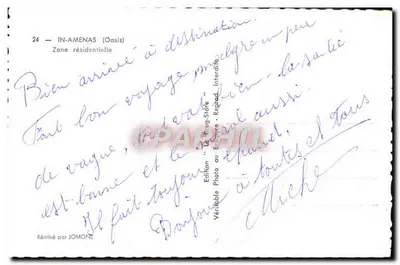 24 — IN-AMENAS (Oasis)
Zone résidentielle
Bien arrivé à destination.
Fait bon voyage, malgré un peu
de vague, tout va bien. la santé
est bonne et le moral aussi.
Il fait toujours chaud,
Bonjour à toutes et tous
Miche
Réalisé par JOMONE
Edition " -Store "
Véritable Photo au Bromure - Reprod. Interdite